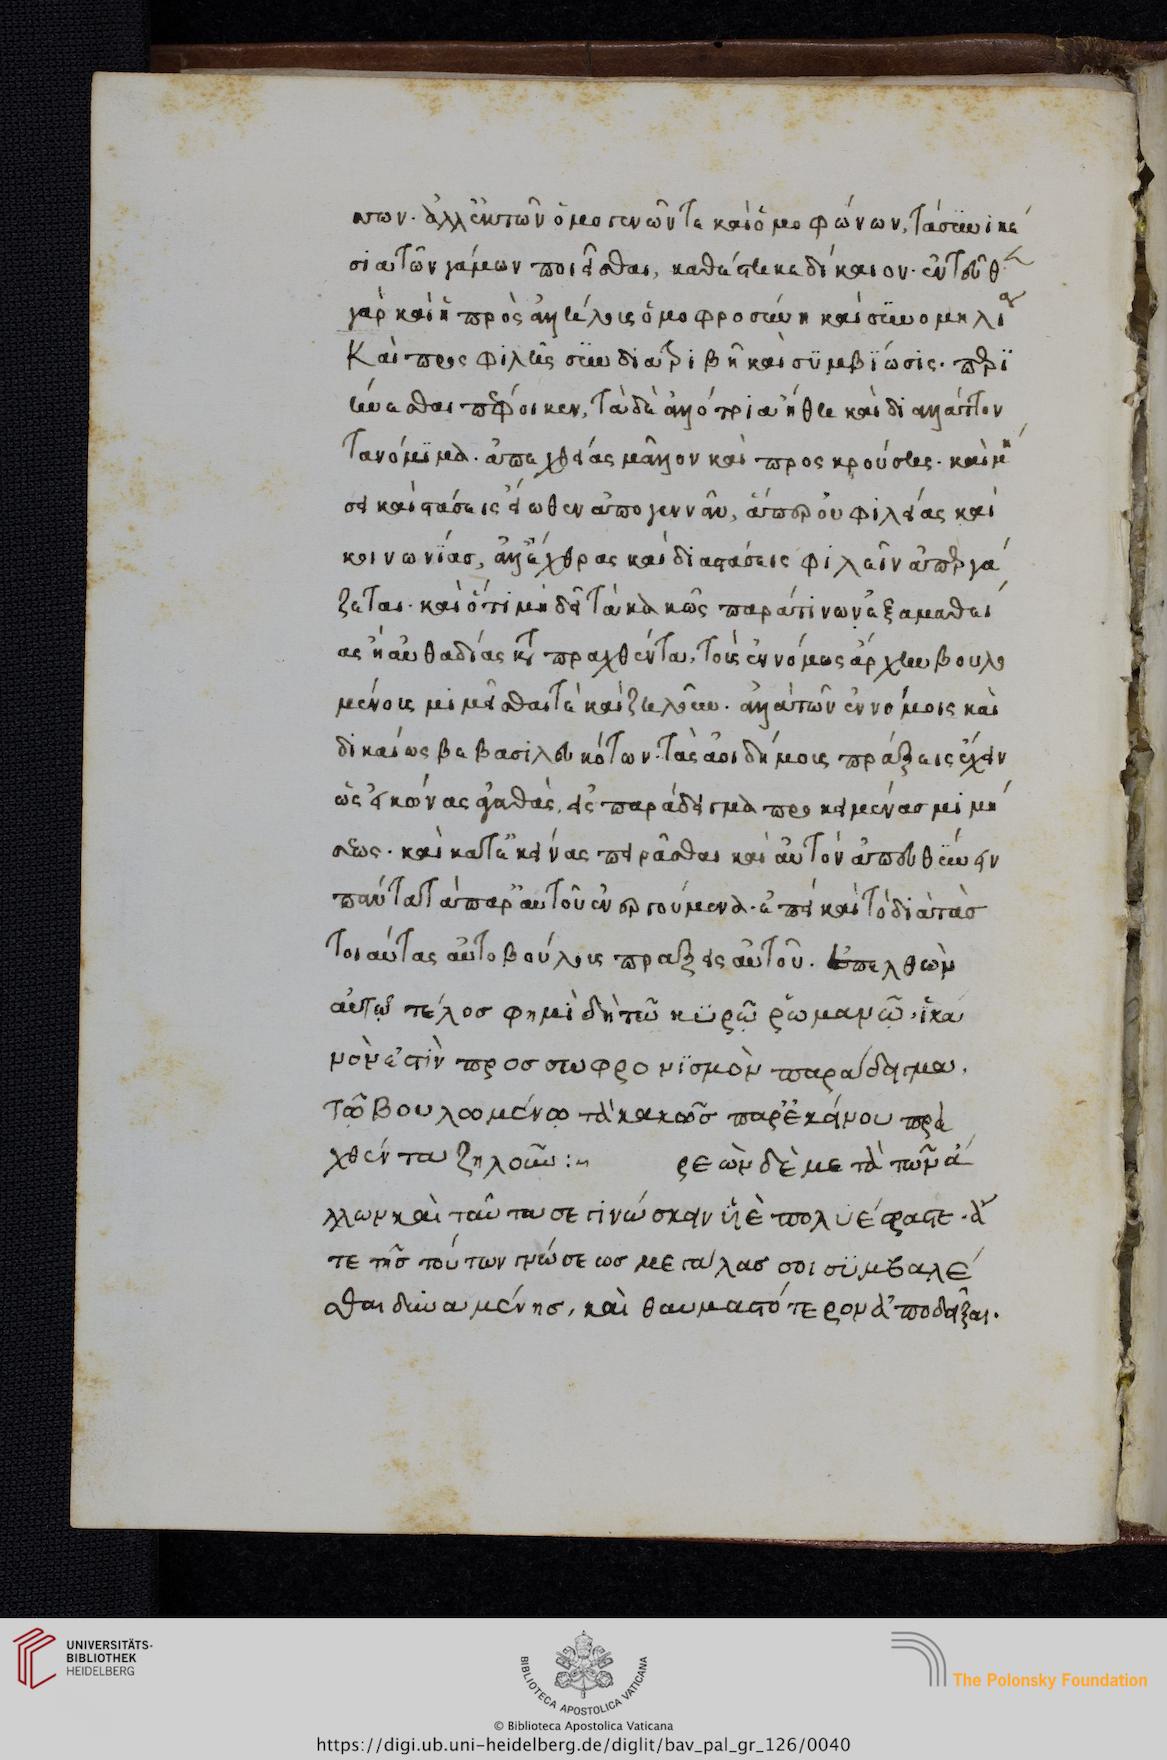 των. ἀλλ' ἐκ τῶν ὁμογενῶν τε καὶ ὁμοφώνων, τὰ συνικέ
σια τῶν γάμων ποιεῖσθαι, καθάπερ καὶ δίκαιον. ἐντεῦθ
γὰρ καὶ ἡ πρὸς ἀλλήλους ὁμοφροσύνη καὶ συνομηλι
Καὶ προς φιλης συνδιατριβὴ καὶ σϋμβϊώσις. περϊ
γίνεσθαι πέφοικεν, τὰ δὲ ἀλλότρια ἤθη καὶ διαλλάττον
τα νόμϊμα. ἀπεχθείας μᾶλλον καὶ προς κρούσης. καὶ μι
ση καὶ στάσεις εἴωθεν ἀπογεννᾶν, ἅπερ οὐ φιλείας καὶ
κοινωνϊασ, ἀλλ' ἔχθρας καὶ διαστάσεις φιλεῖν ἀπεργά
ζεται. καὶ ὅτι μὴ δεῖ τὰ κακῶς παρά τινων ἐξ αμαθεί
ας ἢ αὐθαδείας πραχθέντα, τοὺς ἐννόμως ἄρχειν βουλο
μένους μιμεῖσθαι τὲ καὶ ζηλοῦν. ἀλλὰ τῶν ἐννόμοις καὶ
δικαίως βεβασιλευκότων. τὰς ἀοιδήμοις πράξεις ἔχειν
ὡς εἰκόνας ἀγαθὰς, εἰς παράδειγμα προκειμένας μιμή
σεως. καὶ κατ' ἐκείνας πειρᾶσθαι καὶ αὐτὸν ἀπευθύνειν
πάντα τὰ παρ' αὐτοῦ ἐνεργούμενα. ἐπεὶ καὶ τὸ διὰ τὰσ
τοιαύτας αὐτοβούλους πράξεις αὐτοῦ. ἐπελθὼν
αὐτῷ τέλοσ φημὶ δὴ τῶ κϋρῶ ῥωμανῶ. ἱκα
νὸν ἐστὶν προσ σωφρονϊσμὸν παράδειγμα,
τῶ βουλωμένω τὰ κακῶσ παρ' ἐκείνου πρα
χθέντα ζηλοῦν :~ ρεὼν δὲ μετὰ τῶν ἄ
λλων καὶ ταῦτα σε γινώσκειν ὑιὲ πολυέραστε. ἅ
τε τῆσ τούτων γνώσεωσ μεγάλασ σοι σϋμβαλέ
σθαι δυναμένησ, καὶ θαυμαστότερον ἀποδεῖξαι.
UNIVERSITÄTS-
BIBLIOTHEK
HEIDELBERG
BIBLIOTECA APOSTOLICA VATICANA
The Polonsky Foundation
© Biblioteca Apostolica Vaticana
https://digi.ub.uni-heidelberg.de/diglit/bav_pal_gr_126/0040